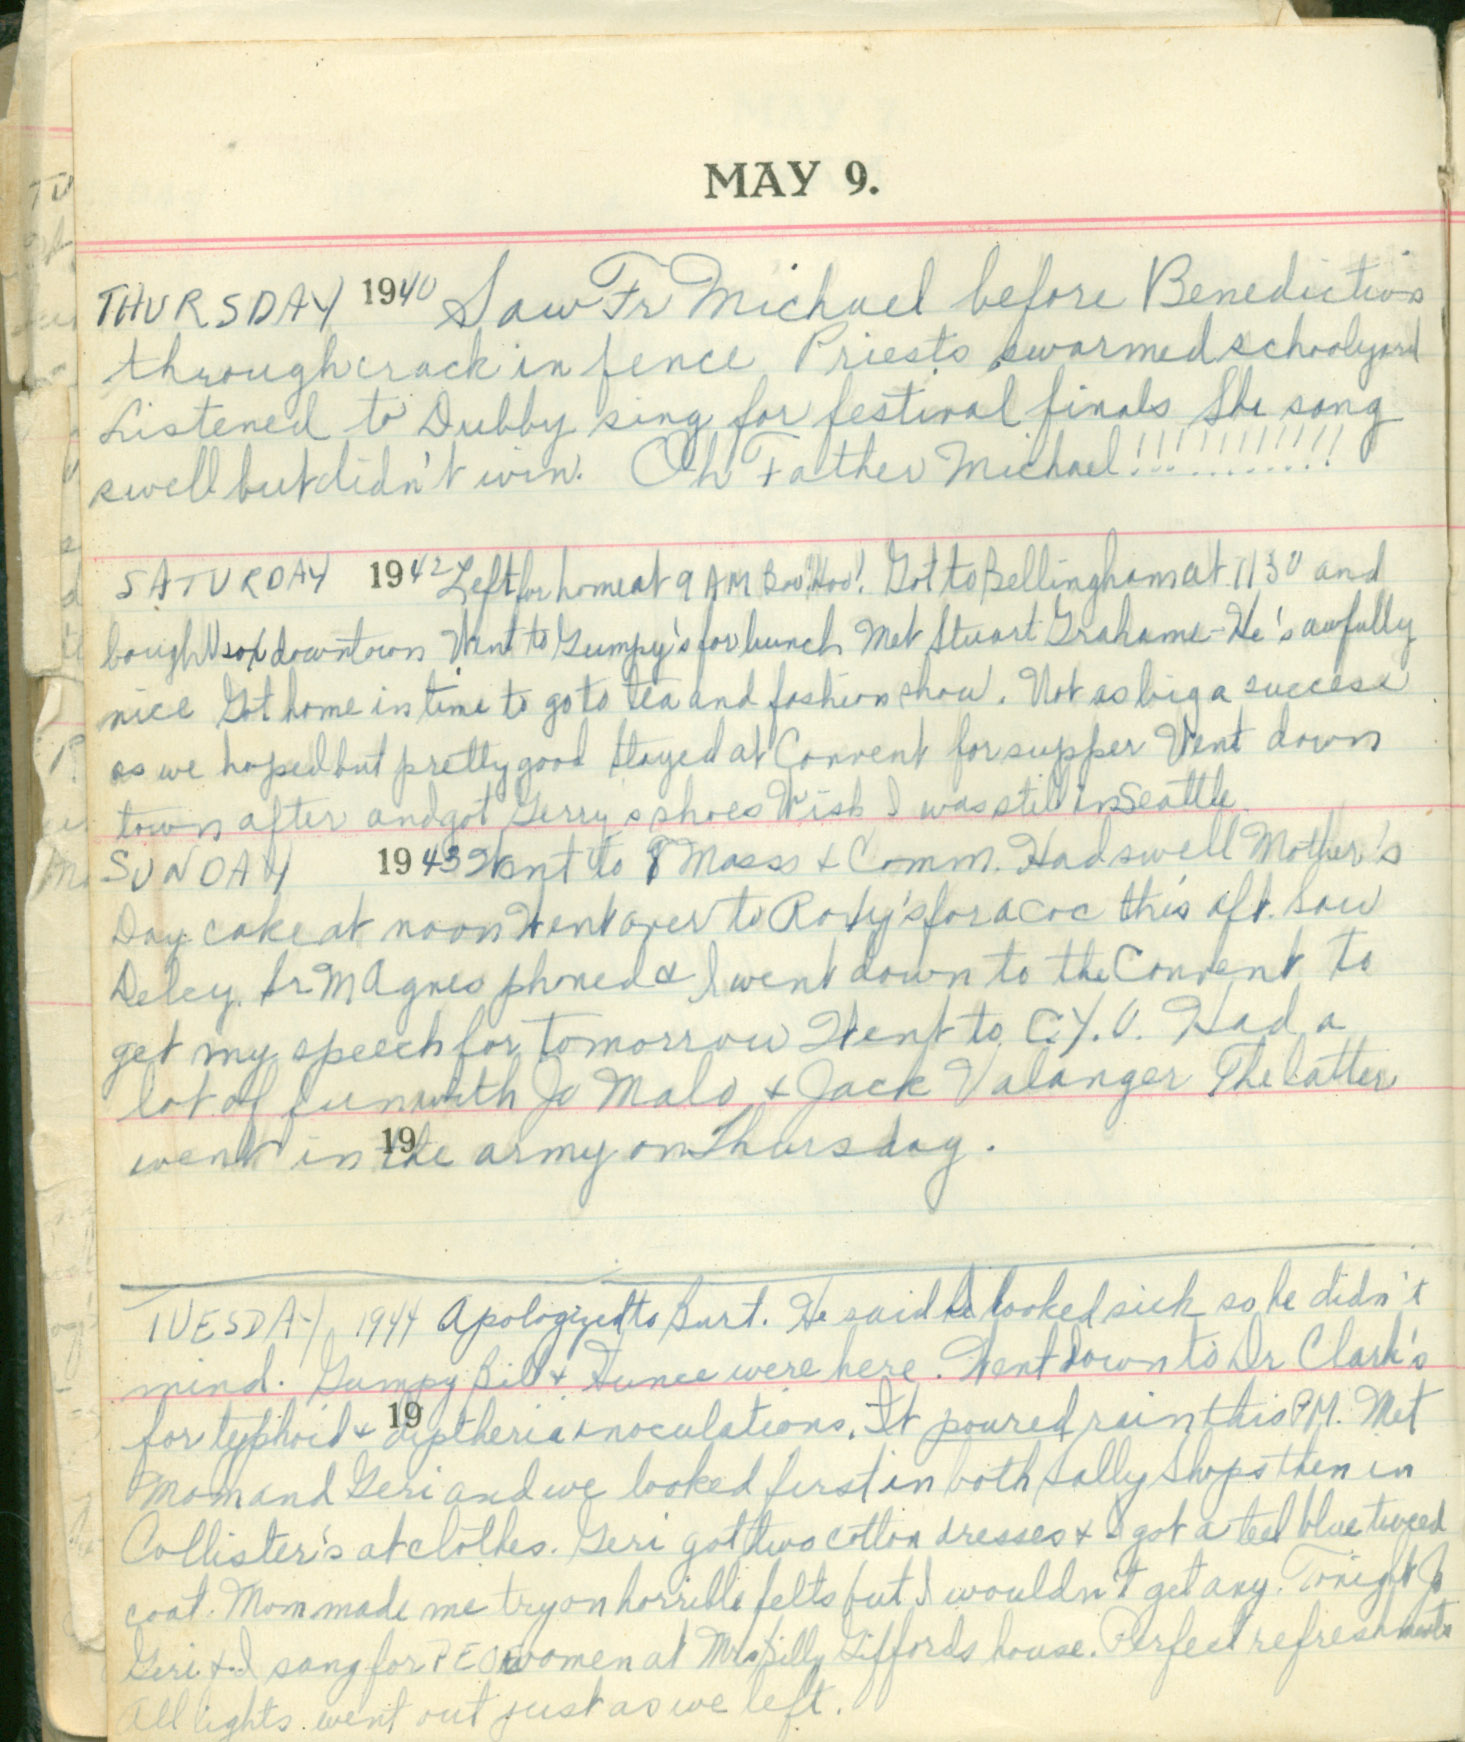 MAY 9.
THURSDAY 1940 Saw Fr Michael before Benediction
through crack in fence Priests swarmed schoolyard
Listened to Dubby sing for festival finals She sang
swell but didn't win. Oh Father Michael!!!!!!!!!!!!
SATURDAY 1942 Left for home at 9 AM Boo Hoo! Got to Bellingham at 11 30 and
bought sox downtown Went to Gumpy's for lunch Met Stuart Grahame - He's awfully
nice Got home in time to go to tea and fashion show. Not as big a success
as we hoped but pretty good Stayed at Convent for supper Went down
town after and got Gerry's shoes Wish I was still in Seattle
SUNDAY 1943 Went to 8 Mass & Comm. Had swell Mother's
Day cake at noon Went over to for a coc this aft. Saw
Deley. Sr M Agnes phoned & I went down to the Convent to
get my speech for tomorrow Went to C.Y.O. Had a
lot of fun with Jo Malo & Jack Valanger The latter
19
went in the army on Thursday.
TUESDAY 1944 Apologized to Burt. He said looked sick so he didn't
mind. Gumpy Bill & were here. Went down to Dr Clark's
19
for typhoid & diptheria inoculations. It poured rain this P.M. Met
Mom and Geri and we looked first in both Sally Shops then in
Collister's at clothes. Geri got two cotton dresses & I got a teel blue tweed
coat. Mom made me try on horrible felts but I wouldn't get any. Tonight Jo
Geri & I sang for PEO women at Mrs Billy Giffords house. Perfect refreshments
All lights went out just as we left.